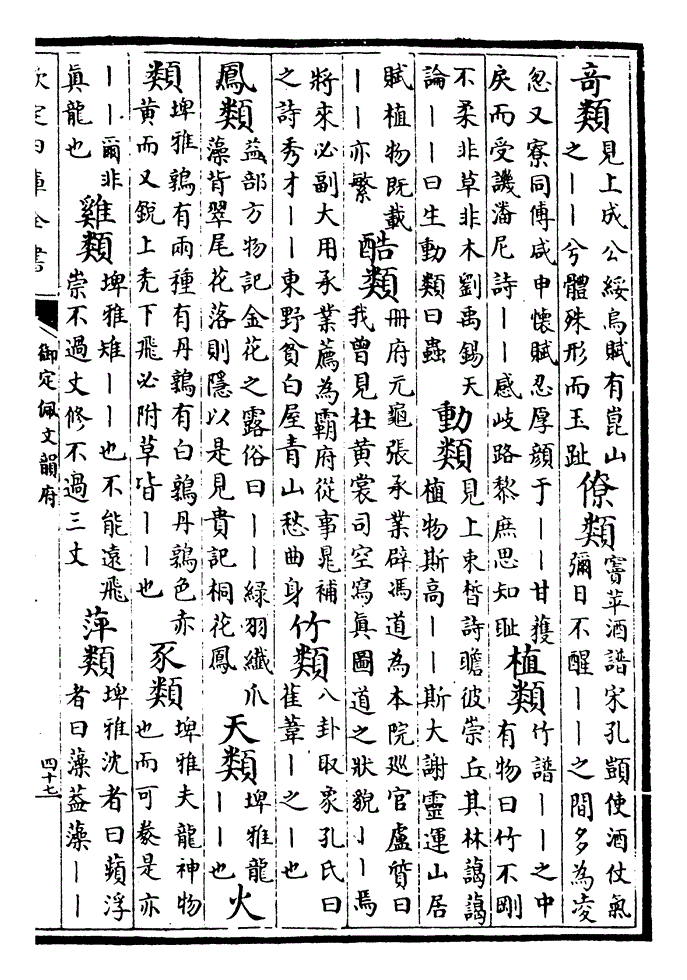 奇類
見上成公綏烏賦有崑山
之丨丨兮體殊形而玉趾
僚類
竇苹酒譜宋孔顗使酒仗氣
彌日不醒丨丨之間多為凌
忽又寮同傅咸申懷賦忍厚顔于丨丨甘獲
戾而受譏潘尼詩丨丨感岐路黎庶思知耻
植類
竹譜丨丨之中
有物曰竹不剛
不柔非草非木劉禹錫天
論丨丨曰生動類曰蟲
動類
見上束晳詩瞻彼崇丘其林藹藹
植物斯高丨丨斯大謝靈運山居
賦植物既載
丨丨亦繁
酷類
冊府元龜張承業辟馮道為本院廵官盧質曰
我曾見杜黄裳司空寫真圖道之狀貌丨丨焉
將來必副大用承業薦為霸府從事晁補
之詩秀才丨丨東野貧白屋青山愁曲身
竹類
八卦取象孔氏曰
萑葦丨之丨也
鳳類
益部方物記金花之露俗曰丨丨緑羽纖爪
藻背翠尾花落則隱以是見貴記桐花鳳
天類
埤雅龍
丨丨也
火
類
埤雅鶉有兩種有丹鶉有白鶉丹鶉色赤
黄而又鋭上秃下飛必附草皆丨丨也
豕類
埤雅夫龍神物
也而可豢是亦
丨丨爾非
真龍也
雞類
埤雅雉丨丨也不能遠飛
崇不過丈修不過三丈
萍類
埤雅沈者曰蘋浮
者曰藻葢藻丨丨
欽定四庫全書
御定佩文韻府
四十七